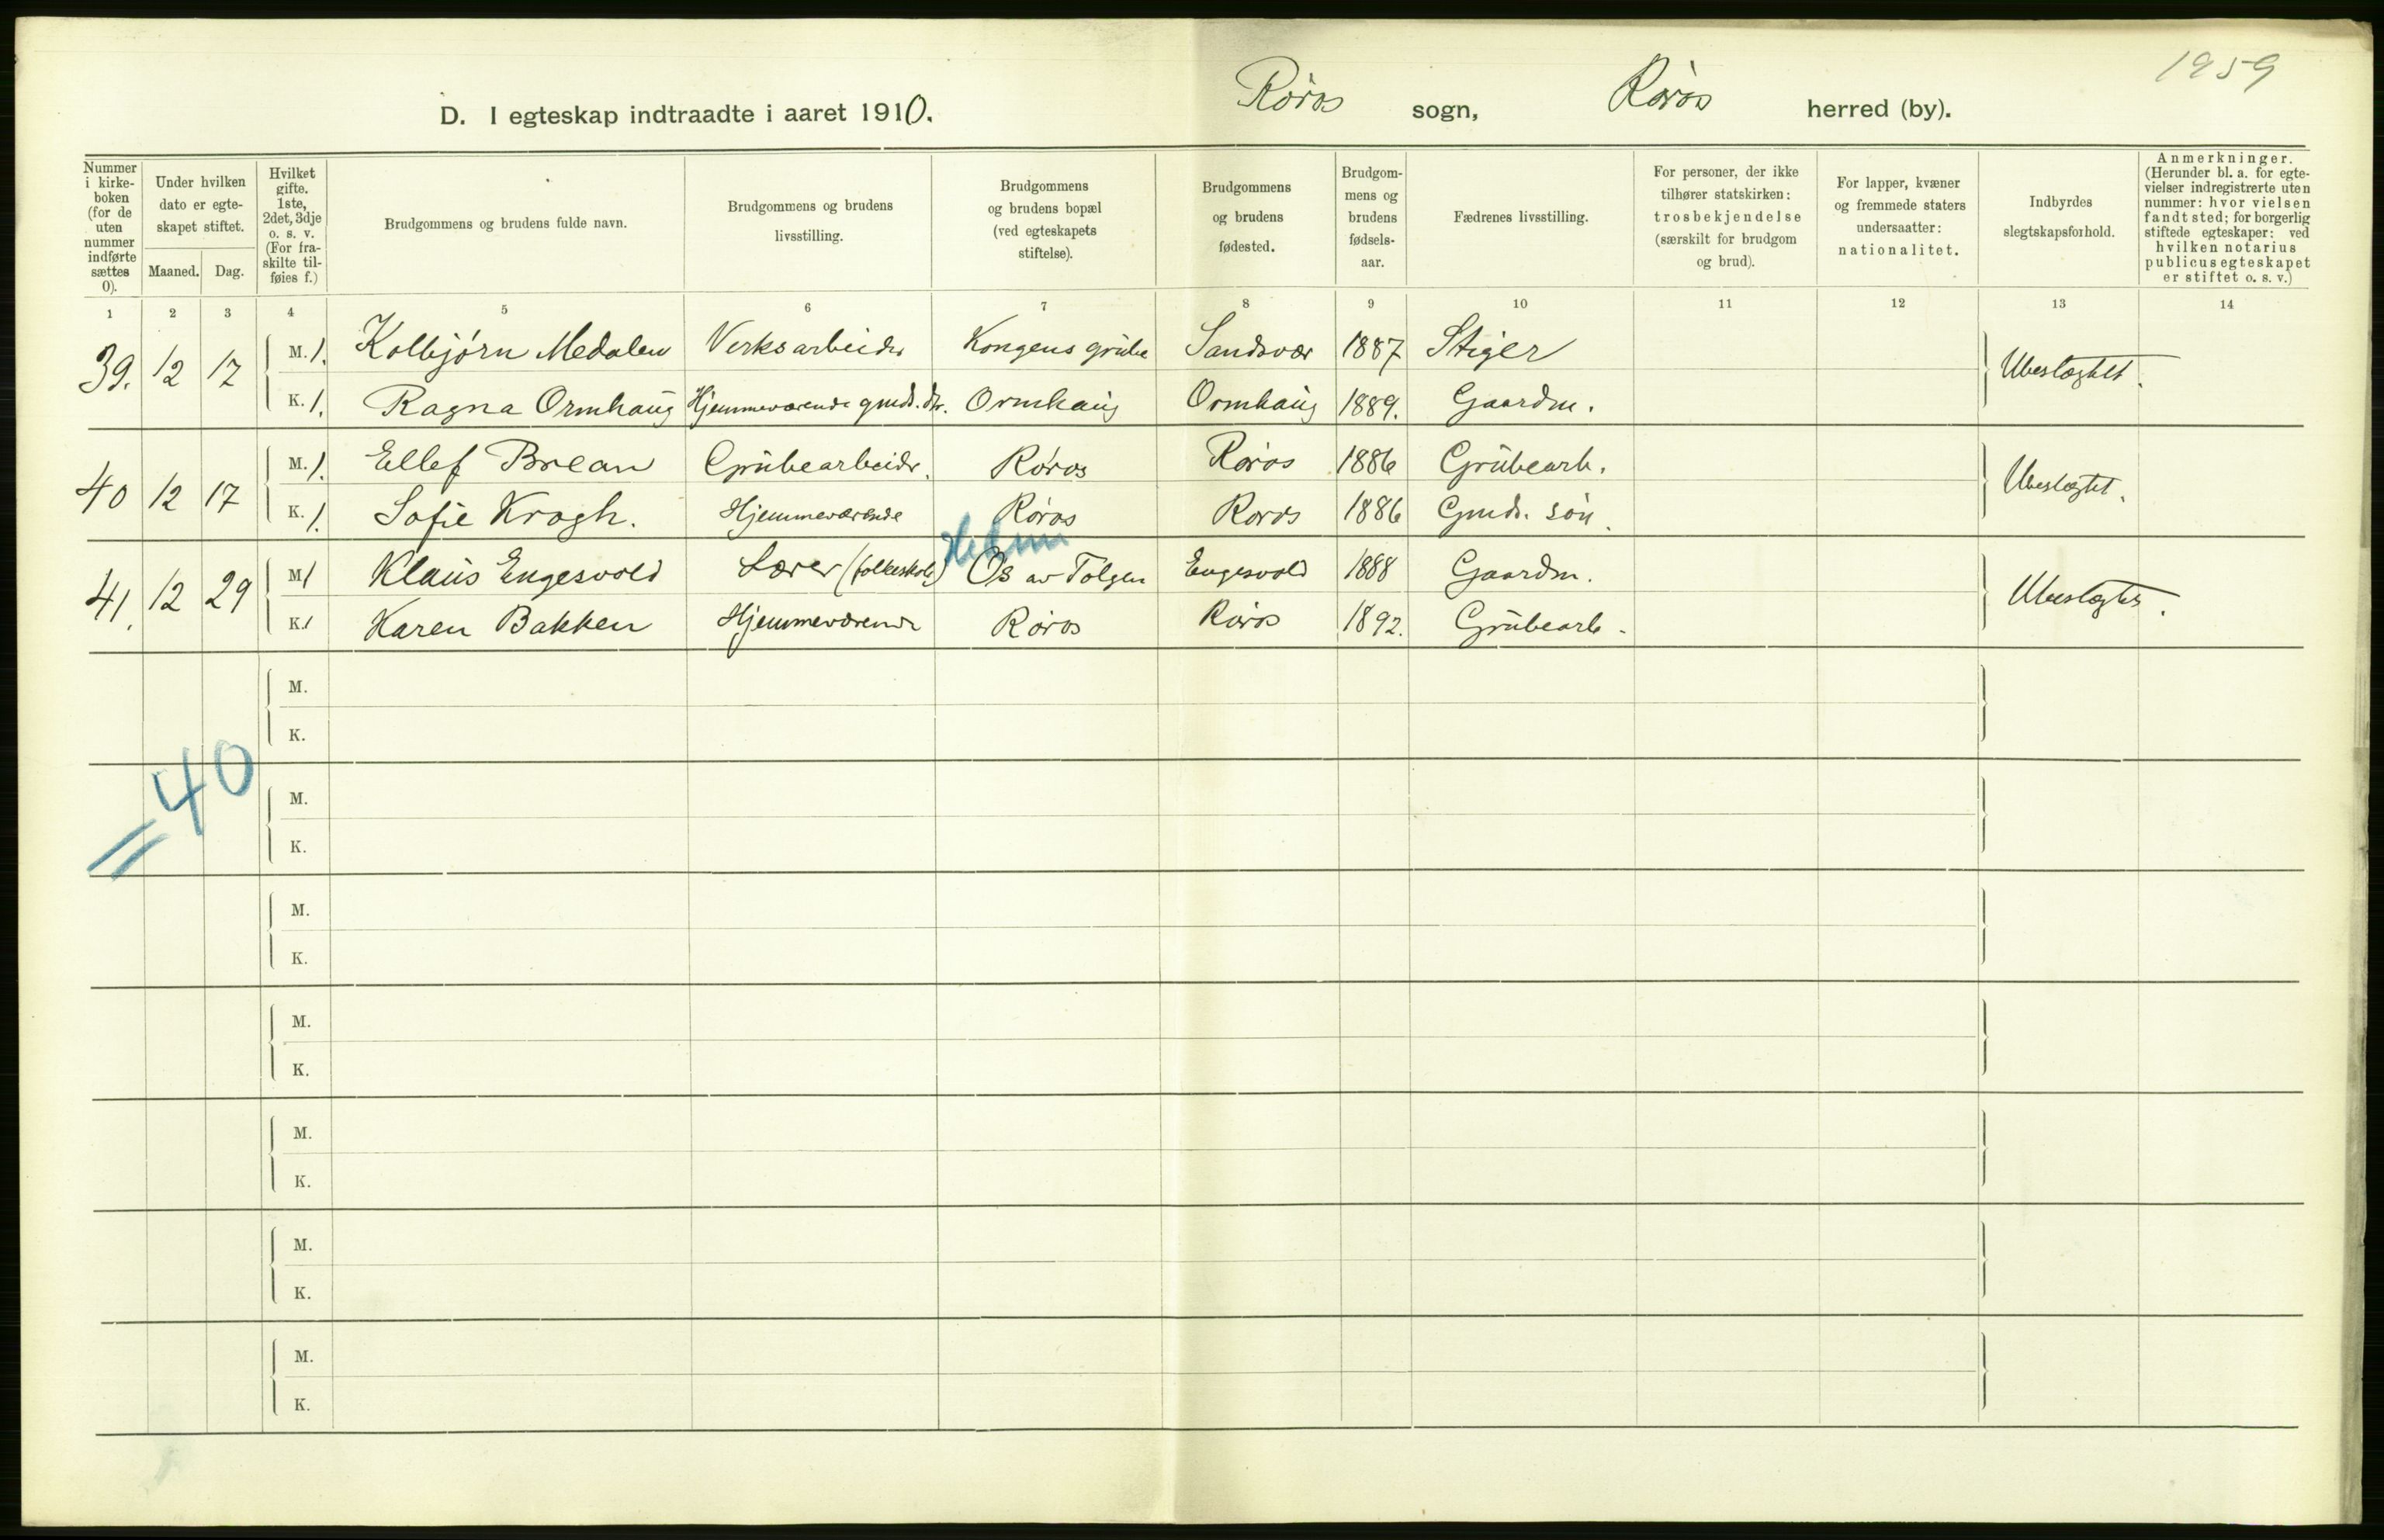 1959
D. I egteskap indtraadte i aaret 1910. Røros sogn, Røros herred (by).
Nummer i kirkeboken (for de uten nummer indførte sættes 0).
Under hvilken dato er egteskapet stiftet.
Maaned. Dag.
Hvilket gifte. 1ste, 2det, 3dje o. s. v. (For fraskilte tilføies f.)
Brudgommens og brudens fulde navn.
Brudgommens og brudens livsstilling.
Brudgommens og brudens bopæl (ved egteskapets stiftelse).
Brudgommens og brudens fødested.
Brudgommens og brudens fødselsaar.
Fædrenes livsstilling.
For personer, der ikke tilhører statskirken: trosbekjendelse (særskilt for brudgom og brud).
For lapper, kvæner og fremmede staters undersaatter: nationalitet.
Indbyrdes slegtskapsforhold.
Anmerkninger. (Herunder bl. a. for egtevielser indregistrerte uten nummer: hvor vielsen fandt sted; for borgerlig stiftede egteskaper: ved hvilken notarius publicus egteskapet er stiftet o. s. v.)
1 2 3 4 5 6 7 8 9 10 11 12 13 14
39. 12 17 M. 1. Kolbjørn Medalen Verksarbeider Kongens grube Sandsvær 1887 Stiger Ubeslægtet.
K. 1. Ragna Ormhaug Hjemmeværende gmds. dtr. Ormhaug Ormhaug 1889. Gaardm.
40 12 17 M. 1. Ellef Brean Grubearbeider. Røros Røros 1886 Grubearb. Ubeslægtet.
K. 1. Sofie Krogh. Hjemmeværende Røros Røros 1886 Gmds. søn.
41. 12 29 M 1 Klaus Engesvold Lærer (folkeskole) Os av Tolgen Engesvold 1888 Gaardm. Ubeslægtet.
K. 1 Karen Bakken Hjemmeværende Røros Røros 1892. Grubearb.
M.
K.
= 40
M.
K.
M.
K.
M.
K.
M.
K.
M.
K.
M.
K.